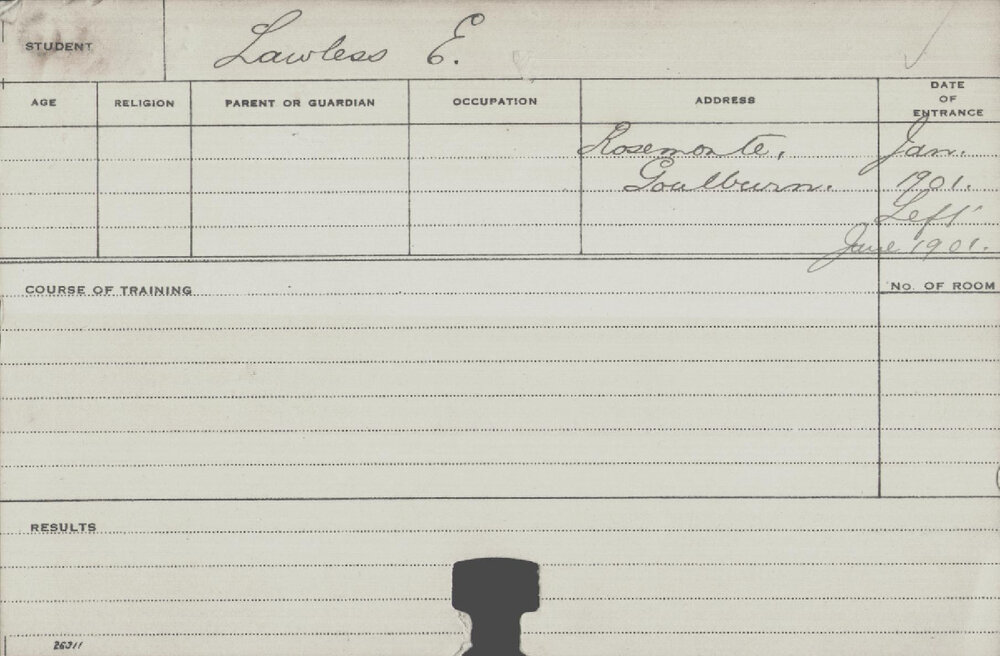 STUDENT Lawless E.
AGE RELIGION PARENT OR GUARDIAN OCCUPATION ADDRESS DATE OF ENTRANCE
Rosemonte, Jan.
Goulburn. 1901.
Left
June 1901.
COURSE OF TRAINING No. OF ROOM
RESULTS
26311